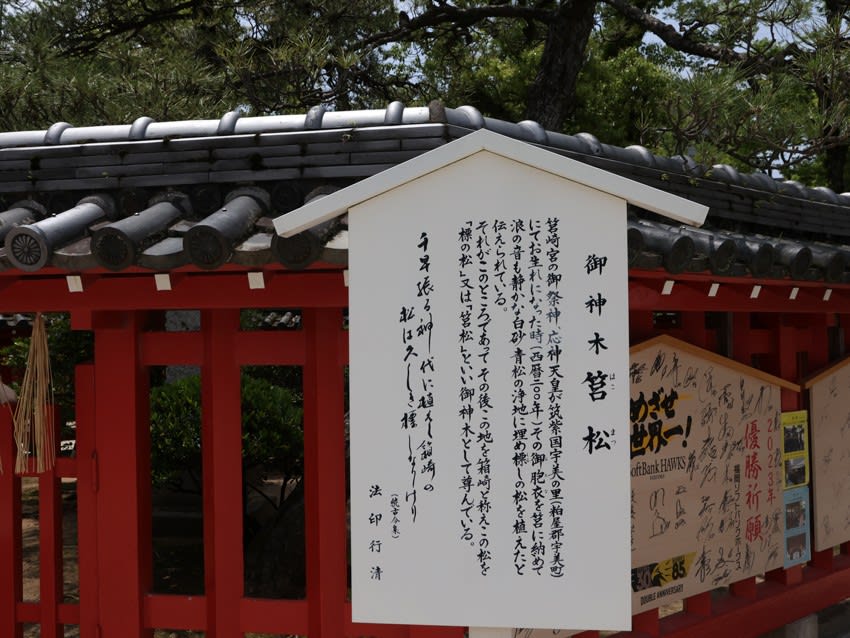 御神木 筥松
はこ まつ
筥崎宮の御祭神、応神天皇が筑紫国宇美の里(粕屋郡宇美町)
にてお生れになった時(西暦二〇〇年)その御胞衣を筥に納めて
浪の音も静かな白砂青松の浄地に埋め標しの松を植えたと
伝えられている。
それがこのところであって その後この地を箱崎と称えこの松を
「標の松」又は「筥松」といい御神木として尊んでいる。
千早振る神代に植えし箱崎の
松は久しき標しなりけり
(続古今集)
法印行清
めざせ
世界一!
SoftBank HAWKS
2023年
優勝祈願
福岡ソフトバンクホークス
85
DOUBLE ANNIVERSARY